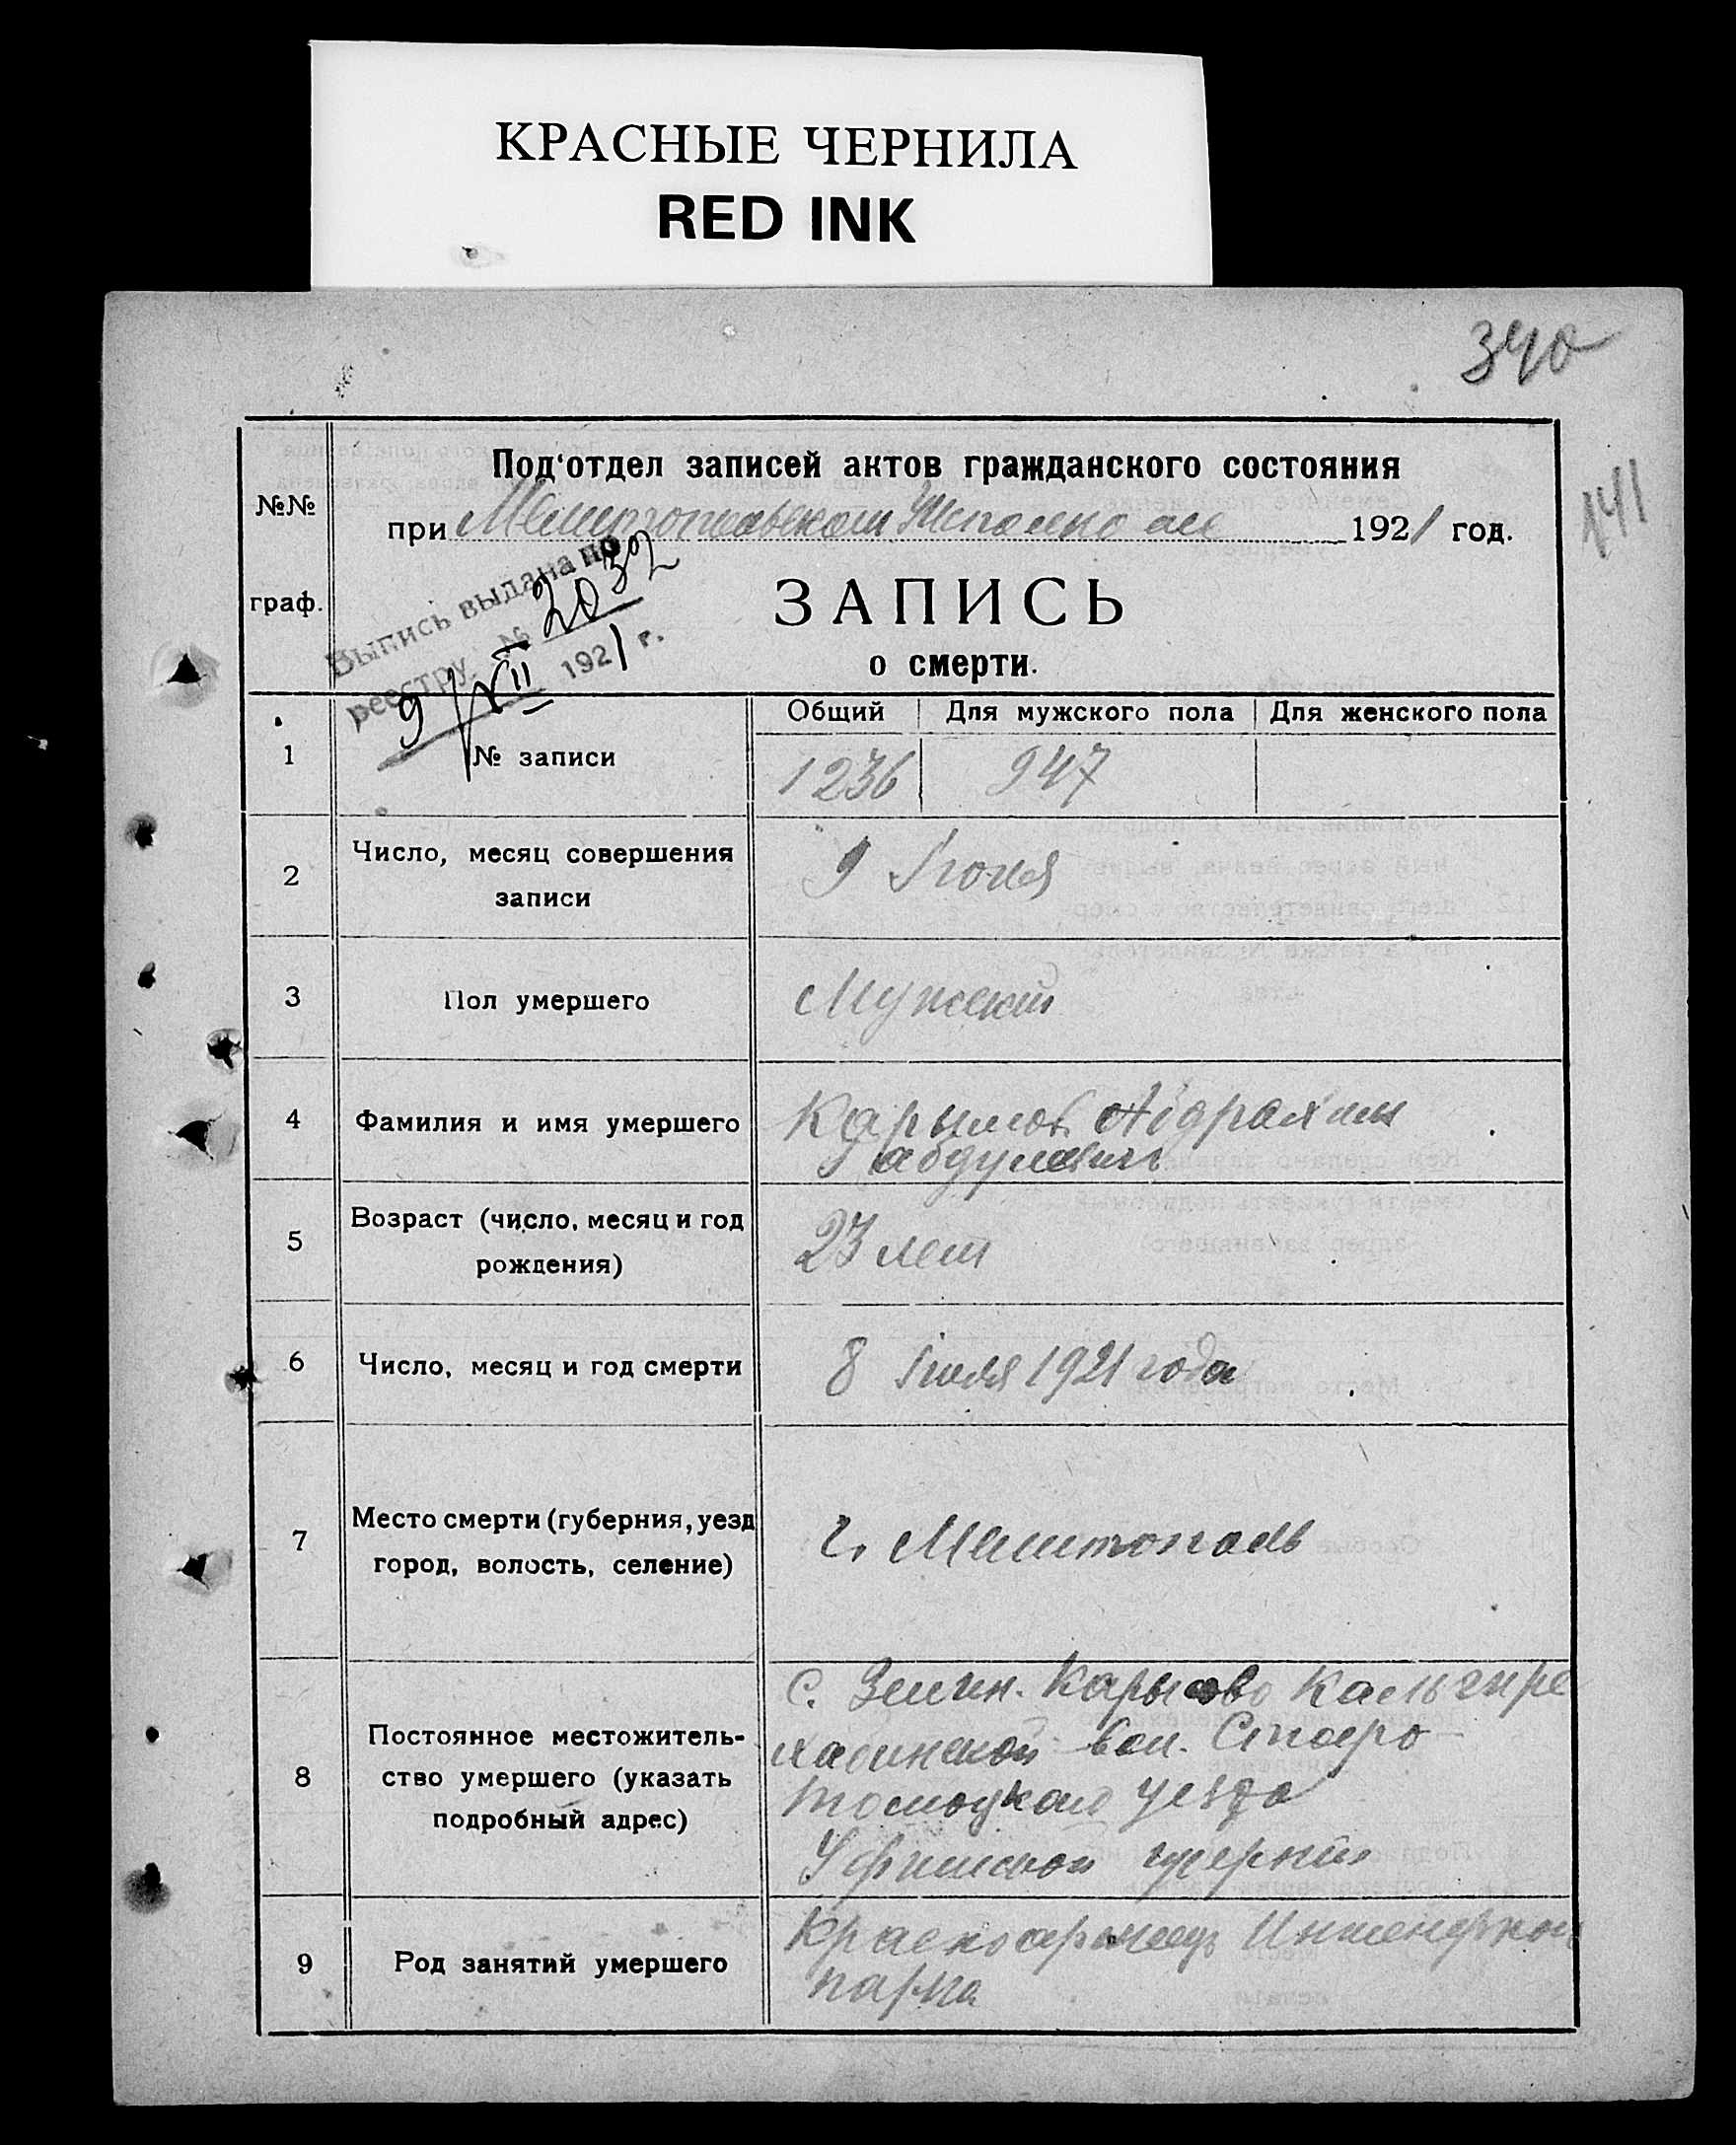 КРАСНЫЕ ЧЕРНИЛА
RED INK
340
141
Под'отдел записей актов гражданского состояния
при Мелитопольском Исполкоме 1921 год.
№№
граф.
Выпись выдана по
реестру № 2032
9/XII 1921 г.
ЗАПИСЬ
о смерти.
Общий Для мужского пола Для женского пола
1 № записи 1236 947
2 Число, месяц совершения
записи
9 Июля
3 Пол умершего Мужской
4 Фамилия и имя умершего Карымов
5 Возраст (число, месяц и год
рождения)
23 лет
6 Число, месяц и год смерти 8 Июля 1921 года
7 Место смерти (губерния, уезд
город, волость, селение)
г. Мелитополь
8 Постоянное местожитель-
ство умершего (указать
подробный адрес)
С. Карысово
вол.
уезда
Уфимской губернии
9 Род занятий умершего Красноармеец Инженерной
парка